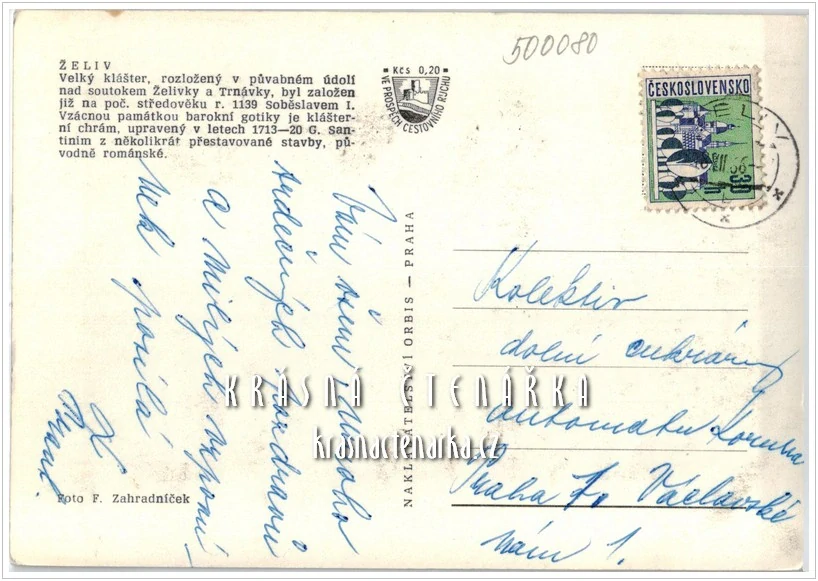 500080
ŽELIV
Velký klášter, rozložený v půvabném údolí
nad soutokem Želivky a Trnávky, byl založen
již na poč. středověku r. 1139 Soběslavem I.
Vzácnou památkou barokní gotiky je klášter-
ní chrám, upravený v letech 1713—20 G. San-
tinim z několikrát přestavované stavby, pů-
vodně románské.
Kčs 0,20
VE PROSPĚCH CESTOVNÍHO RUCHU
ČESKOSLOVENSKO
30
h
ŽELIV
Vám všem mnoho
srdečných pozdravů
a milých vzpomí
nek posílá
NAKLADATELSTVÍ ORBIS — PRAHA
Kolektiv
dolní cukrárny
automatu Koruna
Praha 1, Václavské
nám 1.
KRÁSNÁ ČTENÁŘKA
krasnactenarka.cz
Foto F. Zahradníček